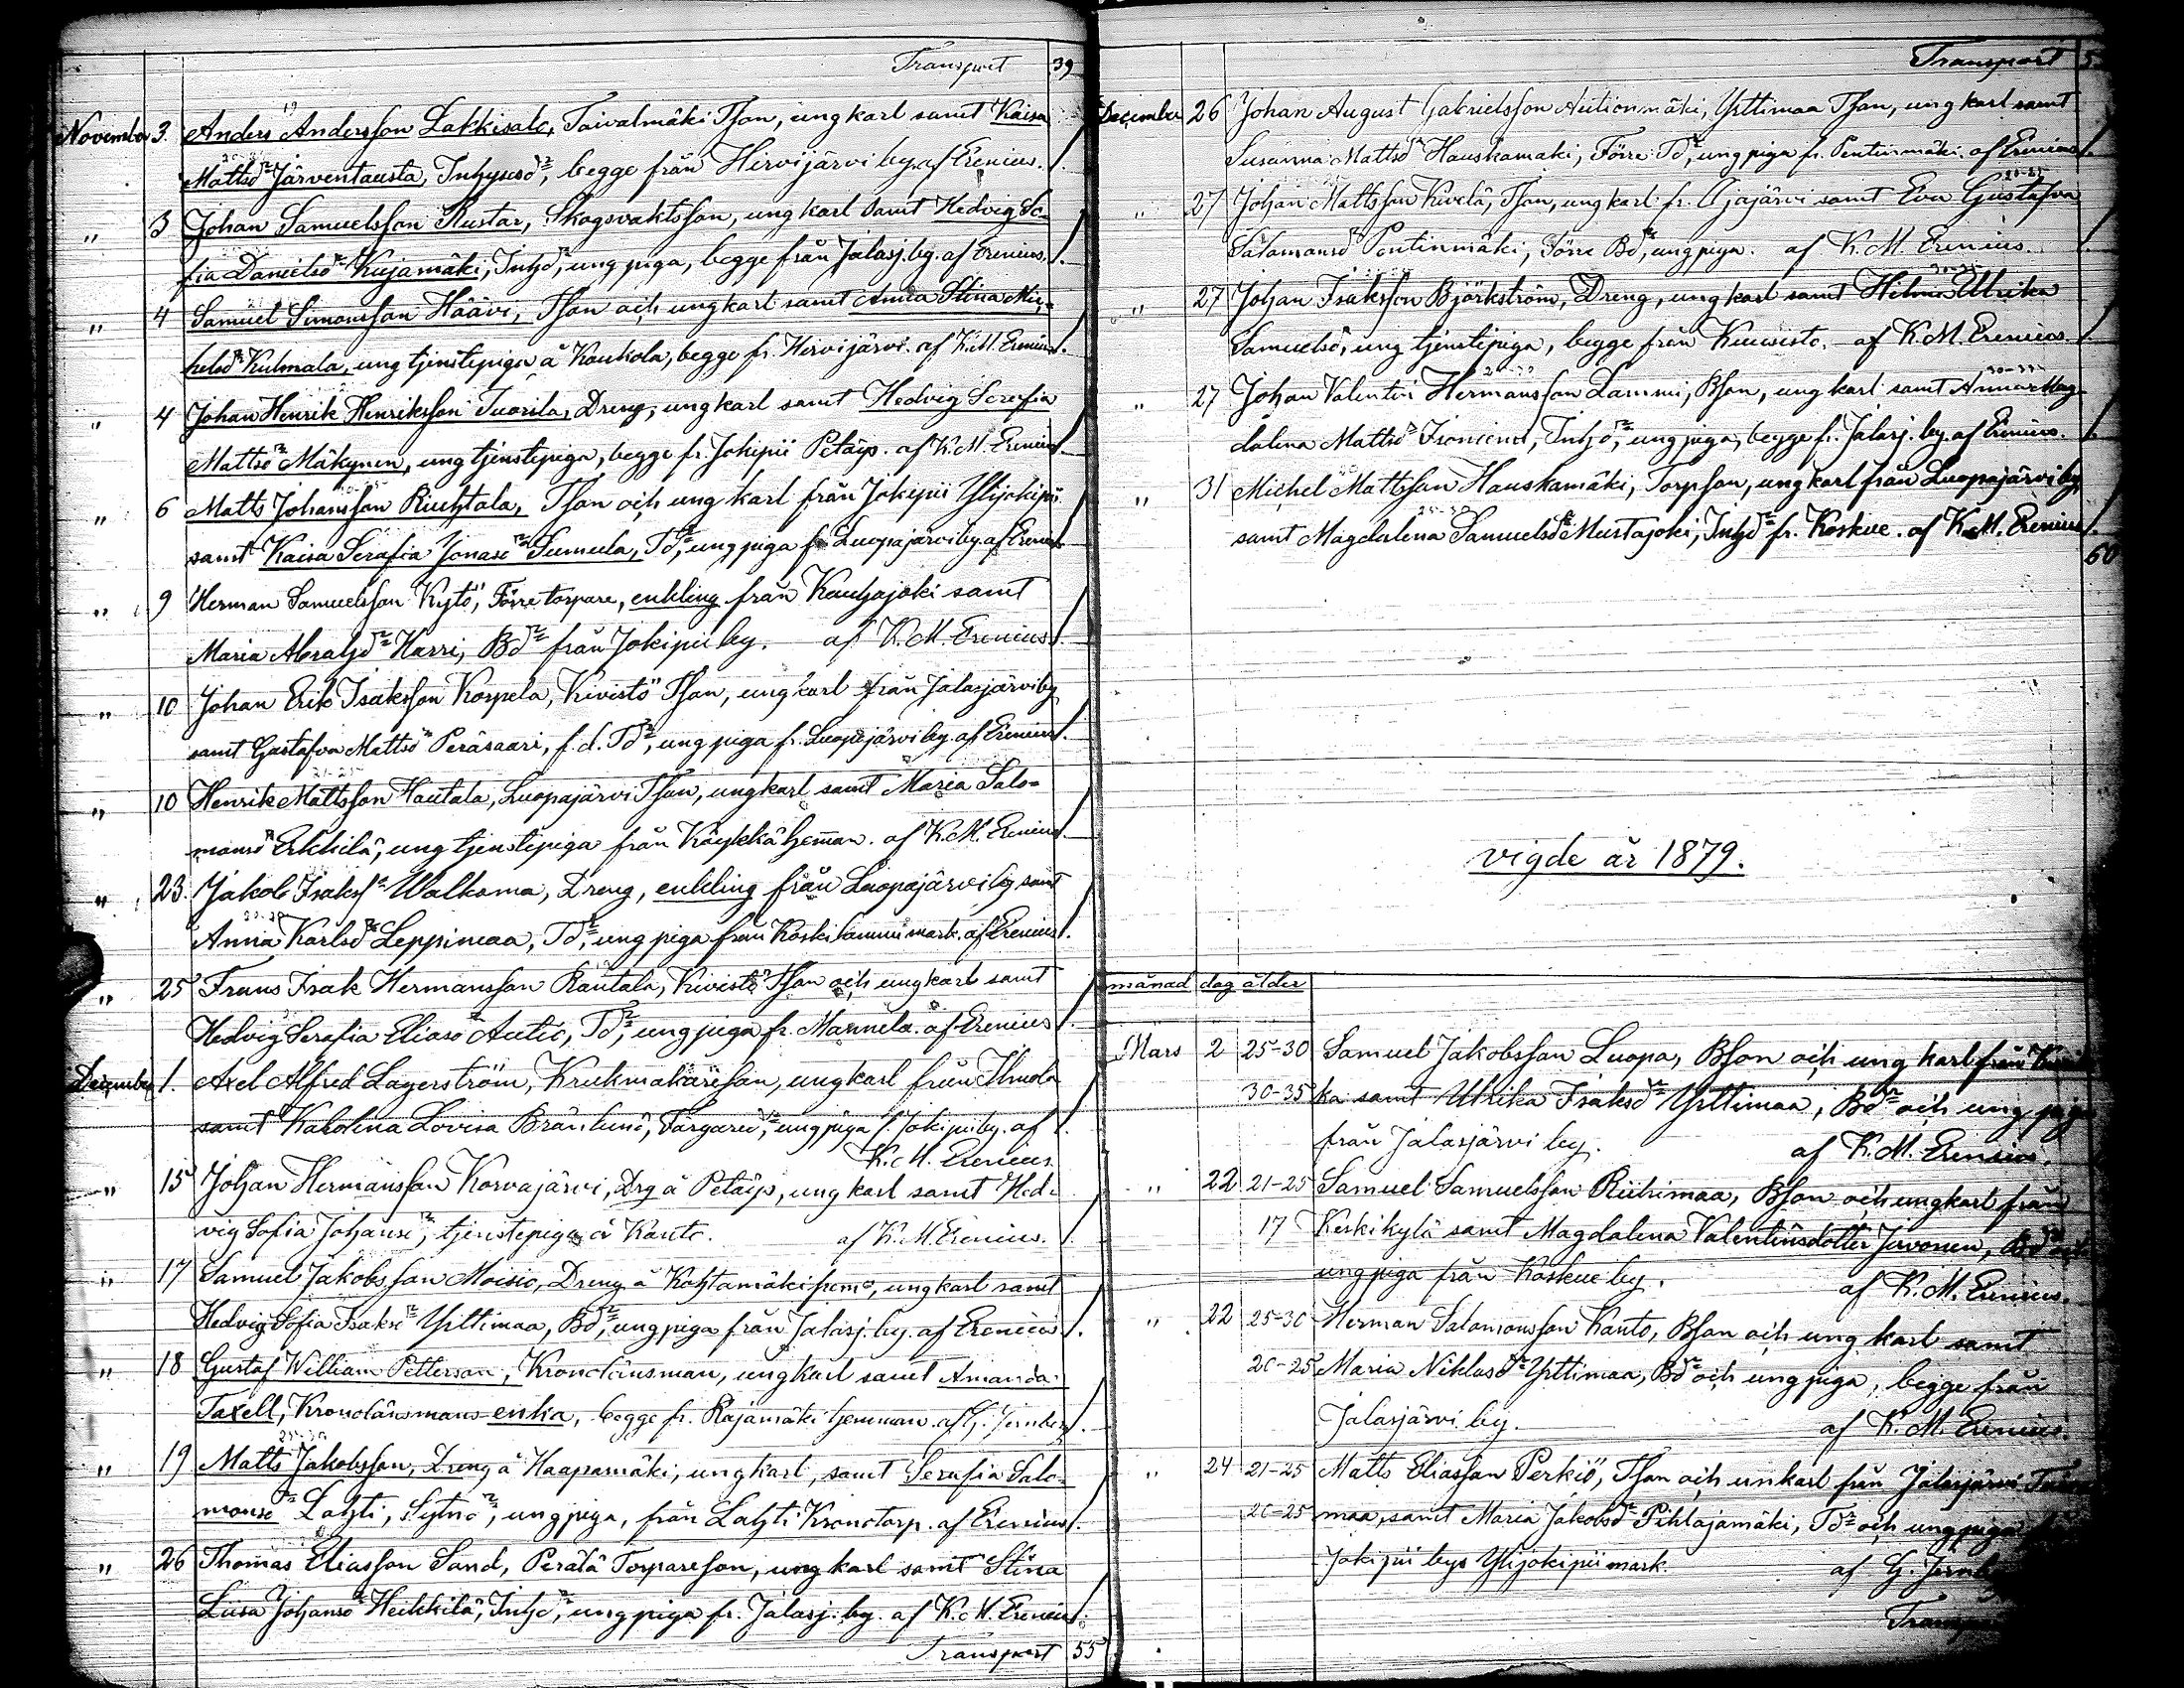 Transport 39
November 3. Anders Andersson Lakkisalo, Taivalmäki Tson, ung karl samt Kaisa
Mattsdr Järventausta, Inhysesdr, begge från Hirvijärvi by. af Erenius.
" 3 Johan Samuelsson Rustar, Skogsvaktsson, ung karl samt Hedvig So-
fia Danielsdr Kujamäki, Inhdr, ung piga, begge från Jalasj. by. af Erenius.
" 4 Samuel Simonsson Häävi, Tson och ung karl samt Anna Stina Mic-
helsdr Kulmala, ung tjenstepiga å Koukola, begge fr. Hirvijärvi. af K. M. Erenius.
" 4 Johan Henrik Henriksson Tuorila, Dreng, ung karl samt Hedvig Serafia
Mattsdr Mäkynen, ung tjenstepiga, begge fr. Jokipii Petäys. af K. M. Erenius
" 6 Matts Johansson Riuhtala, Tson och ung karl från Jokipii Ylijokipii
samt Kaisa Serafia Jonasdr Sumula, Tdr, ung piga fr Luopajärvi by. af Erenius
" 9 Herman Samuelsson Kytö, Förre torpare, enkling från Kauhajoki samt
Maria Abrahdr Harri, Bdr från Jokipii by. af K. M. Erenius.
" 10 Johan Erik Isaksson Korpela, Kivistö Tson, ung karl från Jalasjärvi by
samt Gustafva Mattsdr Peräsaari, f. d. Tdr, ung piga fr. Luopajärvi by. af Erenius.
21-25
" 10 Henrik Mattsson Hautala, Luopajärvi Tson, ung karl samt Maria Salo-
monsdr Erkkilä, ung tjenstepiga från Köykkä heman. af K. M. Erenius.
" 23. Jakob Isakss. Walkama, Dreng, enkling från Luopajärvi by samt
Anna Karlsdr Leppimaa, Tdr, ung piga från Koskilammi mark. af Erenius.
" 25 Frans Isak Hermansson Rantala, Kivistö Tson och ung karl samt
Hedvig Serafia Eliasdr Autio, Tdr, ung piga fr. Mannela. af Erenius
December 1. Axel Alfred Lagerström, Krukmakareson, ung karl från Ilmola
samt Karolina Lovisa Färgaredr, ung piga f. Jokipii by. af
K. M. Erenius.
" 15 Johan Hermansson Korvajärvi, Drg å Petäys, ung karl samt Hed-
vig Sofia Johansdr, tjenstepiga å Kanto. af K. M. Erenius.
" 17 Samuel Jakobsson Moisio, Dreng å Kohtamäki hemo, ung karl samt
Hedvig Sofia Isaksdr Yrttimaa, Bdr, ung piga från Jalasj. by. af Erenius.
" 18 Gustaf William Petterson, Kronolänsman, ung karl samt Amanda
Taxell, Kronolänsmans enka, begge fr. Rajamäki hemman. af
" 19 Matts Jakobsson, Dreng å Haapamäki, ung karl, samt Serafia Salo-
monsdr Lahti, Sytndr, ung piga, från Lahti Kronotorp. af Erenius.
" 26 Thomas Eliasson Sand, Perälä Torpareson, ung karl samt Stina
Liisa Johansdr Heikkilä, Inhdr, ung piga fr. Jalasj. by. af K. M. Erenius.
Transport 55
Transport 5
December 26 Johan August Gabrielsson Autionmäki, Yrttimaa Tson, ung karl samt
Susanna Mattsdr Hauskamäki, Förre Tdr, ung piga fr. Pentinmäki. af Erenius.
" 27 Johan Mattsson Kivelä, Tson, ung karl fr. Ojajärvi samt Eva Gustafva
Salomonsdr Pentinmäki, Förre Bdr, ung piga. af K. M. Erenius.
" 27 Johan Isaksson Björkström, Dreng, ung karl samt Hilma Ulrika
Samuelsdr, ung tjenstepiga, begge från Kuusisto. af K. M. Erenius.
" 27 Johan Valentin Hermansson Lammi, Bson, ung karl samt Anna Mag-
dalena Mattsdr Inhdr, ung piga, begge fr. Jalasj. by. af Erenius.
" 31 Michel Mattsson Hauskamäki, Torpson, ung karl från Luopajärvi by
samt Magdalena Samuelsdr Mustajoki, Inhdr fr. Koskue. af K. M. Erenius.
60
vigde år 1879.
månad dag ålder
Mars 2 25-30 Samuel Jakobsson Luopa, Bson och ung karl från
30-35 ka samt Ulrika Isaksdr Yrttimaa, Bdr och ung piga
från Jalasjärvi by. af K. M. Erenius.
" 22 21-25 Samuel Samuelsson Riihimaa, Bson och ung karl från
17 Keskikylä samt Magdalena Valentinsdotter Juvonen, Bdr och
ung piga från Koskue by. af K. M. Erenius.
" 22 25-30 Herman Salomonsson Kanto, Bson och ung karl samt
20-25 Maria Niklasdr Yrttimaa, Bdr och ung piga, begge från
Jalasjärvi by. af K. M. Erenius.
" 24 21-25 Matts Eliasson Perkiö, Tson och unkarl från Jalasjärvi
20-25 maa, samt Maria Jakobsdr Pihlajamäki, Tdr och ung piga
Jokipii bys Ylijokipii mark. af G.